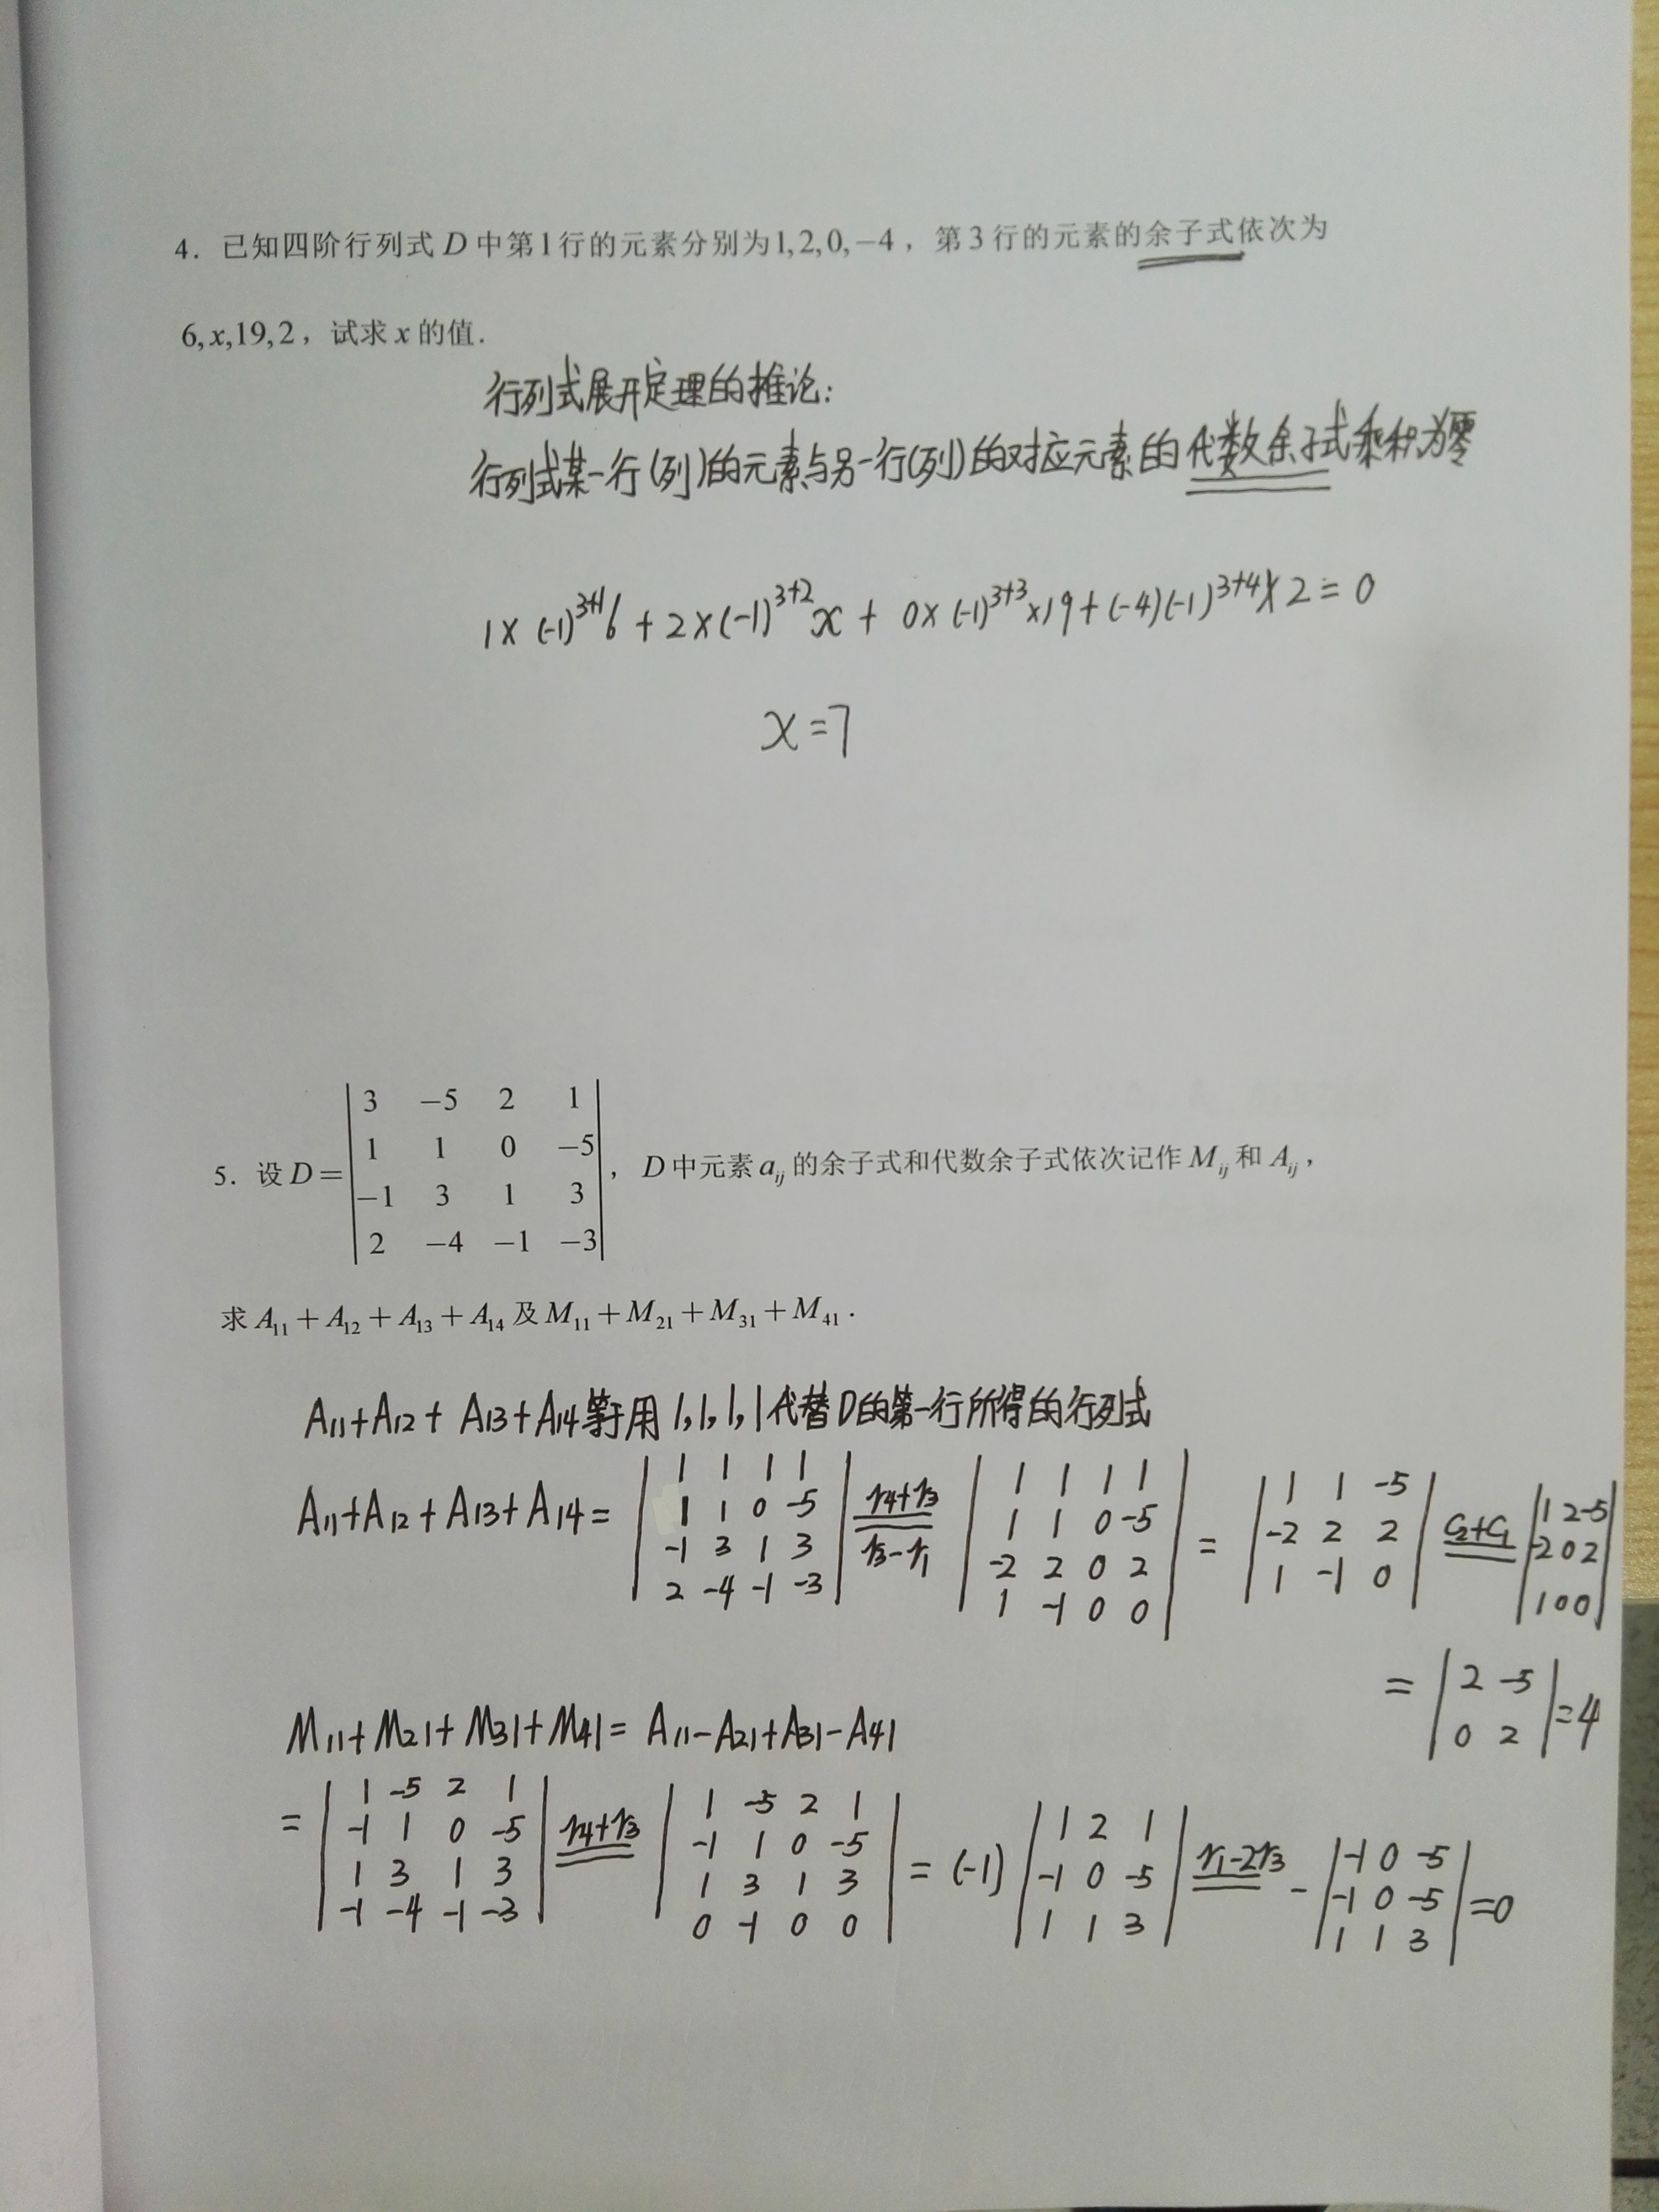 4. 已知四阶行列式 D 中第1行的元素分别为1,2,0,−4，第3行的元素的余子式依次为
6,x,19,2，试求 x 的值.
行列式展开定理的推论:
行列式某一行(列)的元素与另一行(列)的对应元素的代数余子式乘积为零
1×(-1)^{3+1}6+2×(-1)^{3+2}x+0×(-1)^{3+3}×19+(-4)(-1)^{3+4}×2=0
x=7
5. 设D=|3 −5 2 1; 1 1 0 −5; −1 3 1 3; 2 −4 −1 −3|，D中元素a_{ij}的余子式和代数余子式依次记作M_{ij}和A_{ij}，
求A_{11}+A_{12}+A_{13}+A_{14}及M_{11}+M_{21}+M_{31}+M_{41}.
A11+A12+A13+A14等于用1,1,1,1代替D的第一行所得的行列式
A11+A12+A13+A14=|1 1 1 1; 1 1 0 -5; -1 3 1 3; 2 -4 -1 -3| r4+r3 r3-r1 |1 1 1 1; 1 1 0 -5; -2 2 0 2; 1 -1 0 0|=|1 1 -5; -2 2 2; 1 -1 0| c2+c1 |1 2 -5; -2 0 2; 1 0 0|
=|2 -5; 0 2|=4
M11+M21+M31+M41=A11-A21+A31-A41
=|1 -5 2 1; -1 1 0 -5; 1 3 1 3; -1 -4 -1 -3| r4+r3 |1 -5 2 1; -1 1 0 -5; 1 3 1 3; 0 -1 0 0|=(-1)|1 2 1; -1 0 -5; 1 1 3| r1-2r3 -|-1 0 -5; -1 0 -5; 1 1 3|=0